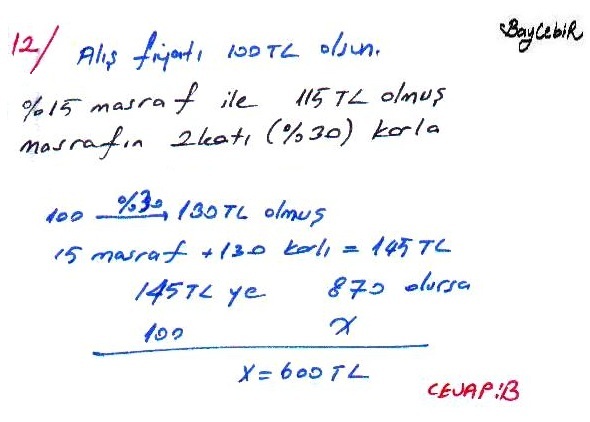 BayCebiR
12/ Alış fiyatı 100TL olsun.
%15 masraf ile 115 TL olmuş
masrafın 2katı (%30) karla
100 %30 130TL olmuş
15 masraf +130 karlı = 145 TL
145TL ye 870 olursa
100 X
X=600TL
CEVAP:B